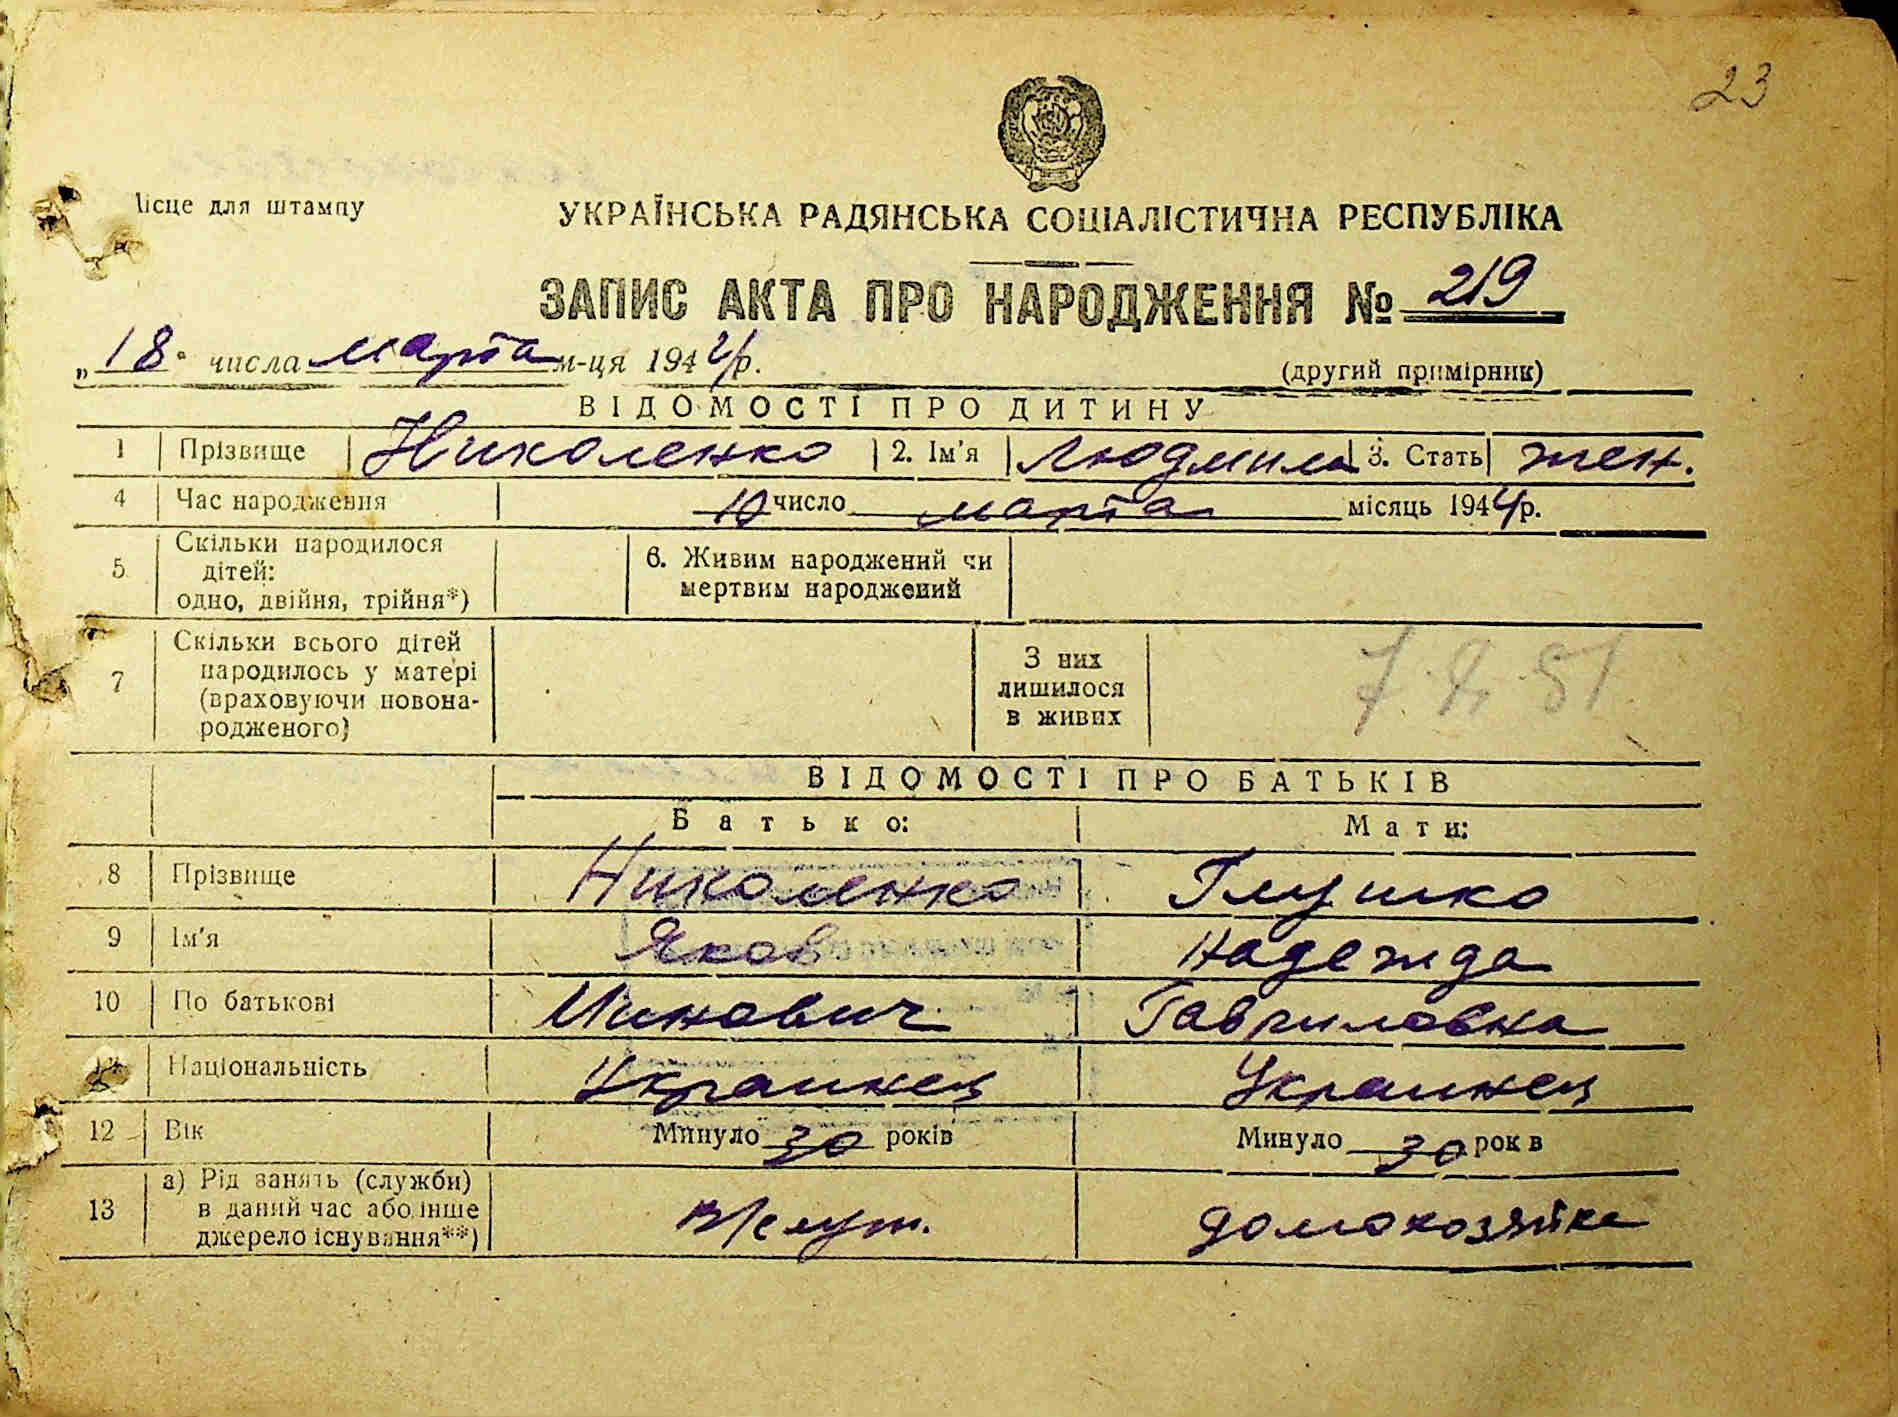 23
Місце для штампу
УКРАЇНСЬКА РАДЯНСЬКА СОЦІАЛІСТИЧНА РЕСПУБЛІКА
ЗАПИС АКТА ПРО НАРОДЖЕННЯ № 219
„18" числа марта м-ця 1944 р.
(другий примірник)
ВІДОМОСТІ ПРО ДИТИНУ
1 Прізвище Николенко 2. Ім'я Людмила 3. Стать жен.
4 Час народження 10 число марта місяць 1944 р.
5 Скільки народилося дітей: одно, двійня, трійня*) 6. Живим народжений чи мертвим народжений
7 Скільки всього дітей народилось у матері (враховуючи новонародженого) З них лишилося в живих
ВІДОМОСТІ ПРО БАТЬКІВ
Батько: Мати:
8 Прізвище Николенко Глушко
9 Ім'я Яков Надежда
10 По батькові Минович Гавриловна
Національність Украинец Украинец
12 Вік Минуло 30 років Минуло 30 років
13 а) Рід занять (служби) в даний час або інше джерело існування**) в/служ. домохозяйка